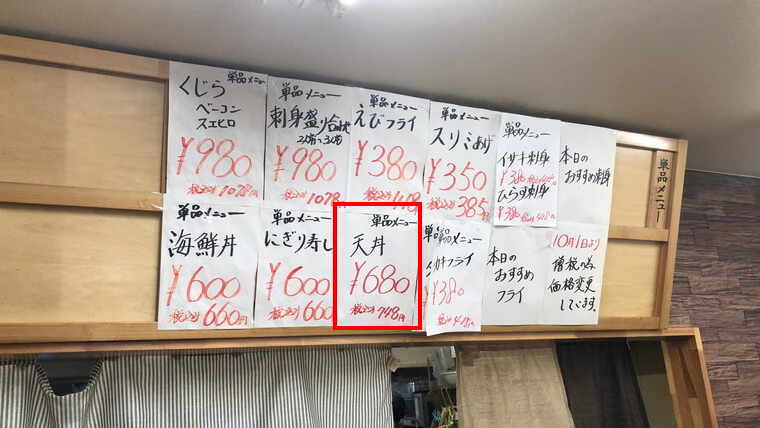 単品メニュー
くじら
ベーコン
スエヒロ
¥980
税込み1078円
単品メニュー
刺身盛り合せ
¥980
税込み1078
単品メニュー
えびフライ
¥380
税込み418円
単品メニュー
スリミあげ
¥350
税込み385円
単品メニュー
イサキ刺身
¥380
ひらす刺身
¥380
本日の
おすすめ刺身
単品メニュー
単品メニュー
海鮮丼
¥600
税込み660円
単品メニュー
にぎり寿し
¥600
税込み660
単品メニュー
天丼
¥680
税込み748円
単品メニュー
フライ
¥380
税込み418円
本日の
おすすめ
フライ
10月1日より
増税の為
価格変更
しています。